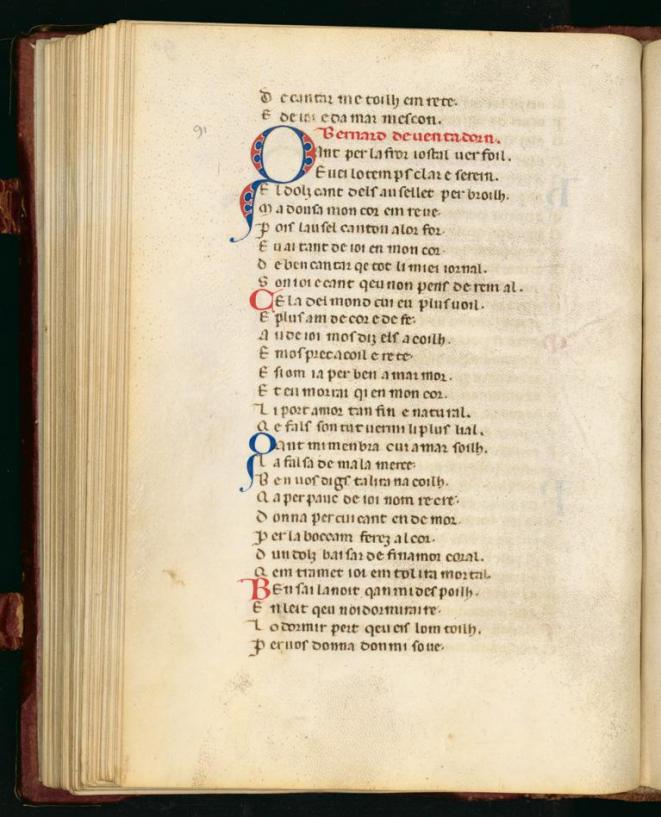 91
D e cantar me toilh em rete.
E de ioi e da mar mescon.
Bernard de uentadorn.
Qant per la flor iostal uer foil.
E uei lo temps clar e serein.
E l dolz cant dels auselletz per broilh.
M a dousa mon cor em reue.
P ois lausel canton a lor for.
E u ai tant de ioi en mon cor.
D e ben cantar qe tot li miei iornal.
S on ioi e cant qeu non pens de ren al.
CEla del mond cui eu plus uoil.
E plus am de cor e de fe.
A u de ioi mos diz els acoilh.
E mos precs acoil e rete.
E si om ia per ben amar mor.
E t eu morrai qi en mon cor.
L i port amor tan fin e natural.
Q e fals son tut uermi li plus lial.
Qant mi menbra cui amar soilh.
L a falsa de mala merce.
B en uos digs tal ira na coilh.
Q a per pauc de ioi nom recre.
D onna per cui cant e demor.
P er la boccam ferez al cor.
D un dolz baisar de finamor coral.
Q em tramet ioi em tol ira mortal.
BEn sai la noit qan mi despoilh.
E n leit qeu noi dormirai re.
L o dormir pert qeu eis lom toilh.
P er uos donna don mi soue.